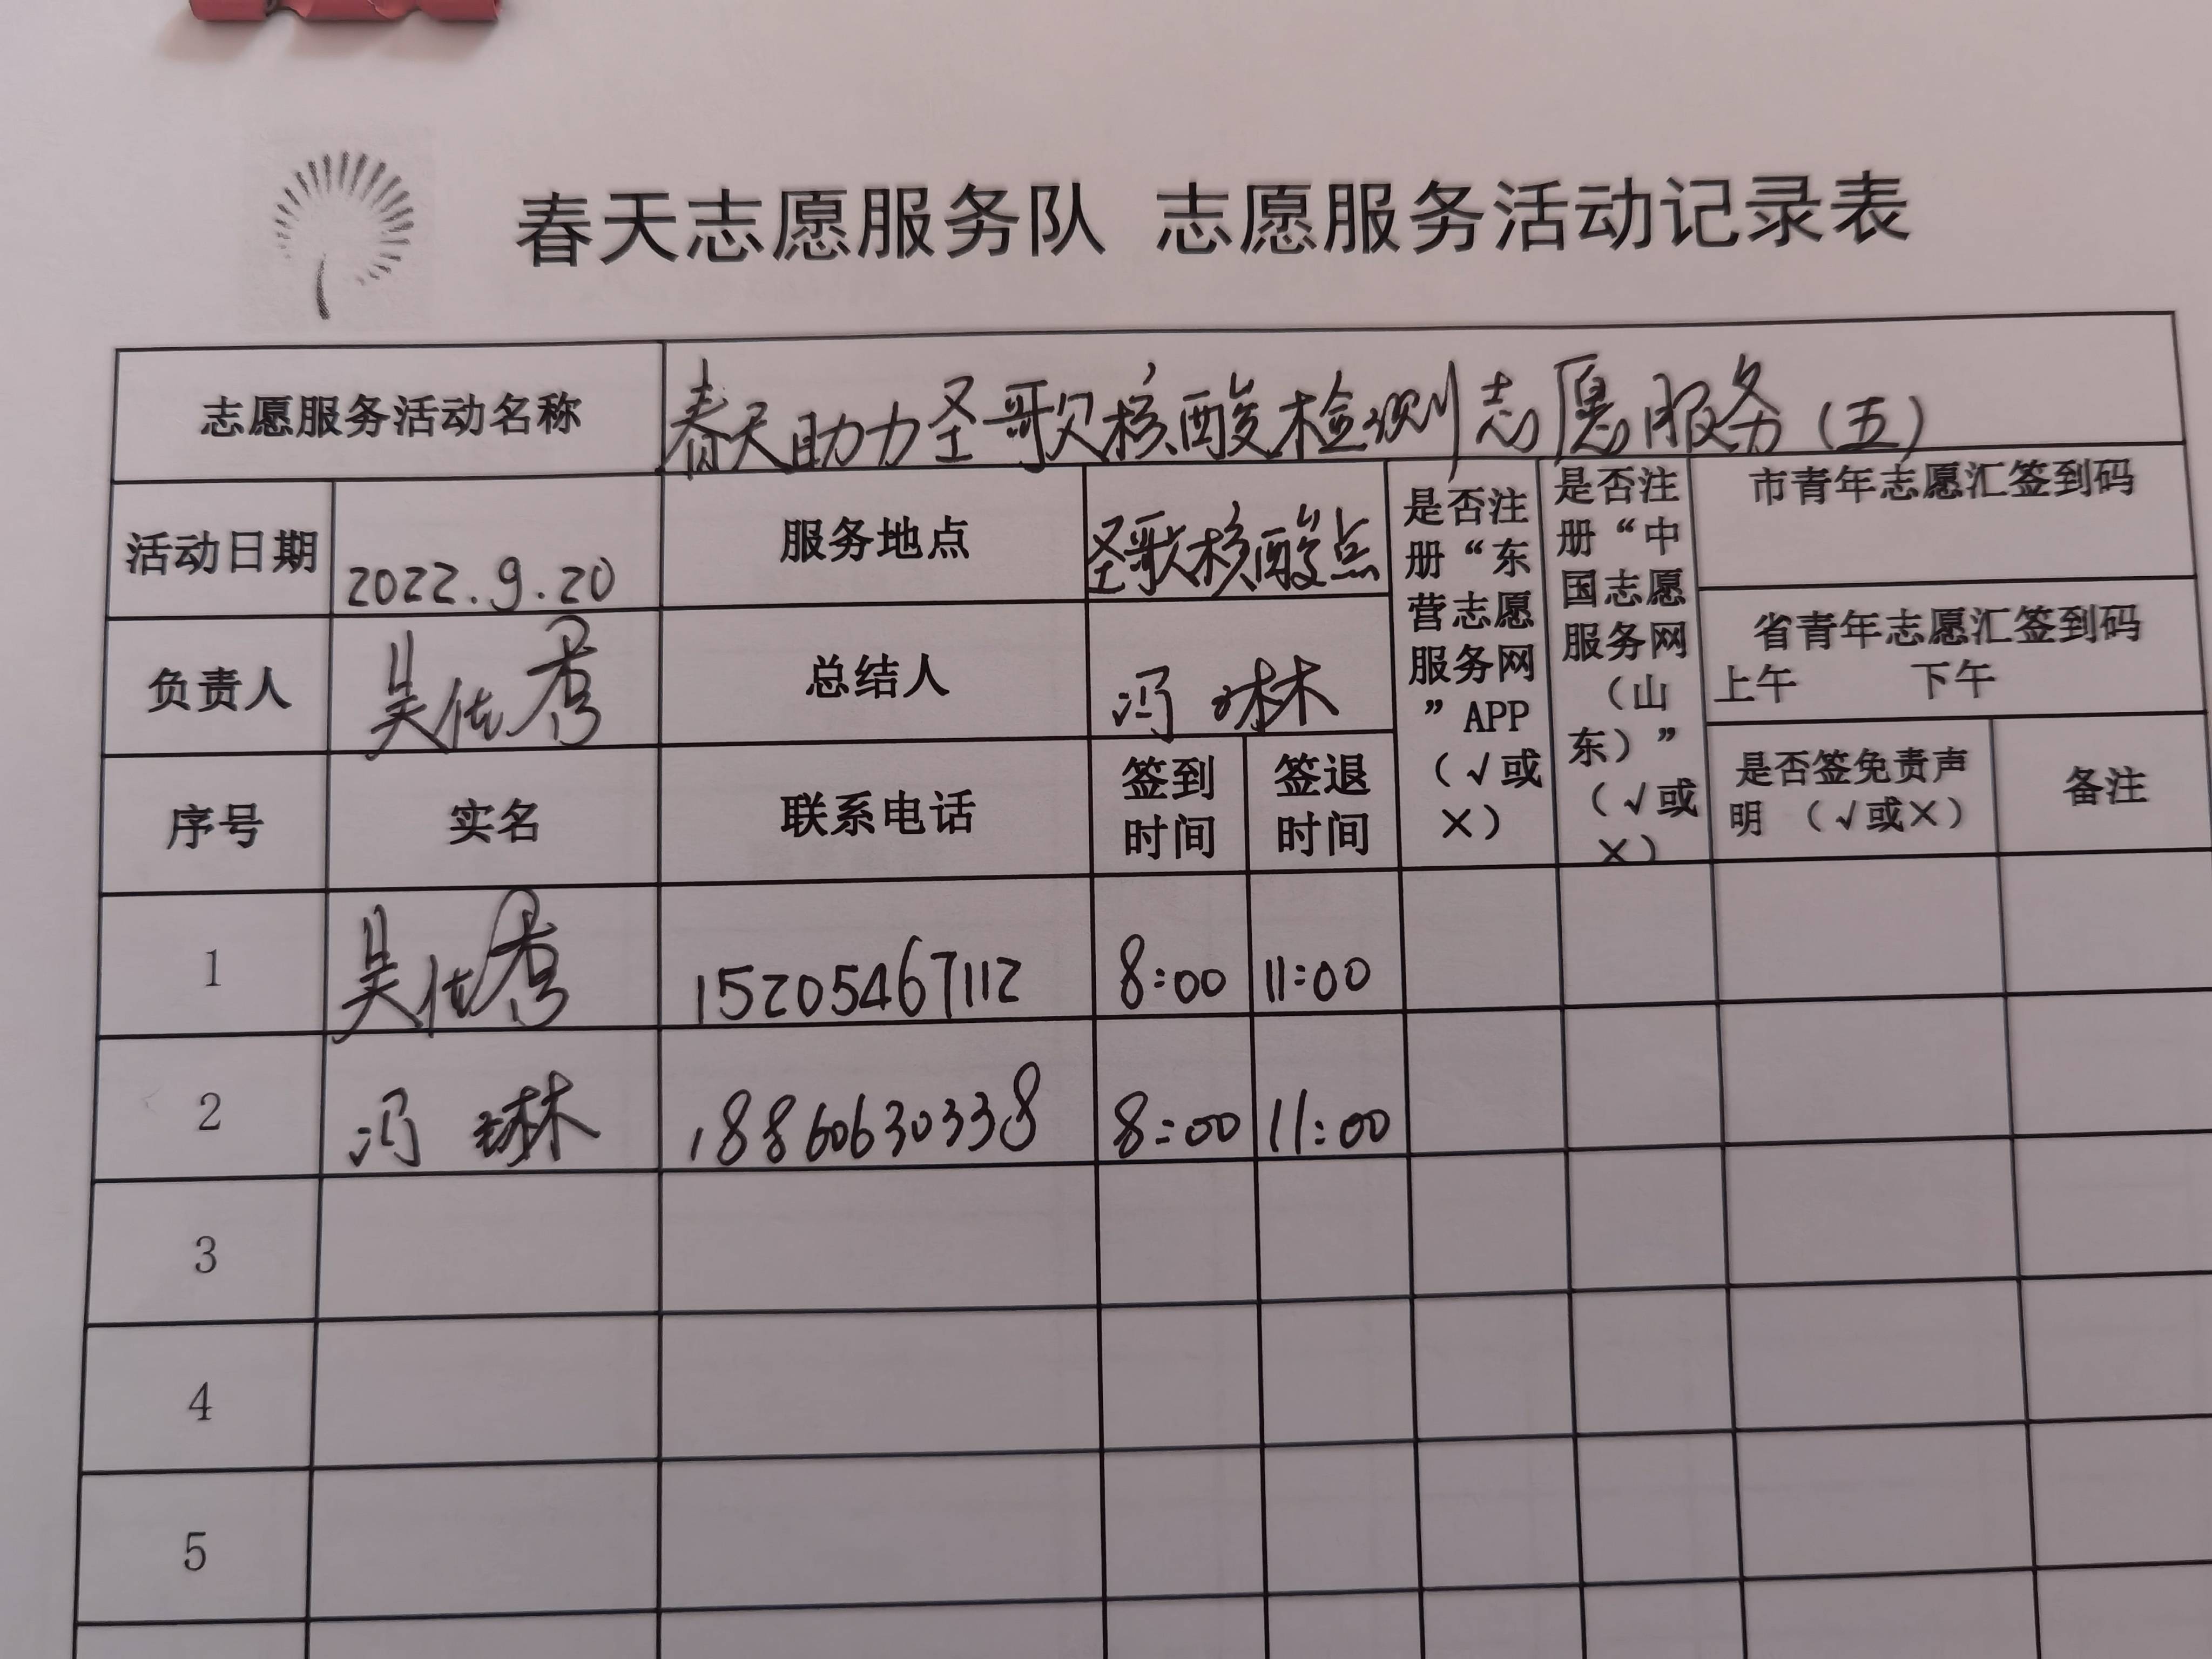 春天志愿服务队 志愿服务活动记录表
志愿服务活动名称 春天助力圣歌核酸检测志愿服务（五）
活动日期 2022.9.20 服务地点 圣歌核酸点
是否注册“东营志愿服务网”APP（√或×）
是否注册“中国志愿服务网（山东）”（√或×）
市青年志愿汇签到码
省青年志愿汇签到码
上午 下午
负责人 吴佐秀 总结人 冯琳
序号 实名 联系电话 签到时间 签退时间 是否签免责声明（√或×） 备注
1 吴佐秀 15205467112 8:00 11:00
2 冯琳 18860630338 8:00 11:00
3
4
5